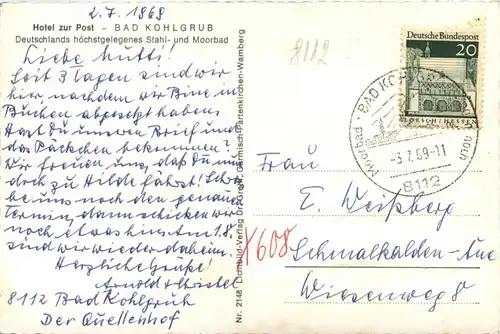 2.7.1969
Hotel zur Post - BAD KOHLGRUB
Deutschlands höchstgelegenes Stahl- und Moorbad
Liebe Mutti!
Seit 3 Tagen sind wir
hier nachdem wir Bine in
Buchen abgesetzt haben.
Hast du unseren Brief und
das Päckchen bekommen?
Wir freuen uns, daß Du nun
doch zu Hilde fährst! Schreibe
uns noch den genauen
Termin, dann schicken wir
noch etwas hin. Am 1.8.
sind wir wieder daheim
Herzliche Grüße!
Arnold + Christel
8112 Bad Kohlgrub
Der Quellenhof
Nr. 2148 Lichtbild-Verlag Dr. Groß, Garmisch-Partenkirchen-Wamberg
8112
Deutsche Bundespost
20
LORSCH / HESSEN
BAD KOHLGRUB
Moorbad
-3.7.69-11
8112
Frau
E. Weißberg
X608
Schmalkalden-Aue
Wiesenweg 8